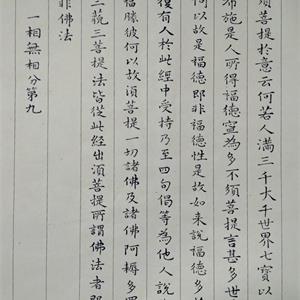 須菩提於意云何若人滿三千大千世界七寶以
布施是人所得福德寧為多不須菩提言甚多世
何以故是福德即非福德性是故如来說福德多
復有人於此經中受持乃至四句偈等為他人說
福勝彼何以故須菩提一切諸佛及諸佛阿耨多羅
三藐三菩提法皆從此經出須菩提所謂佛法者即
非佛法
一相無相分第九